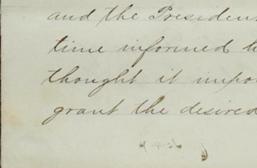 and the Presiden
time informed
thought it impo
grant the desired